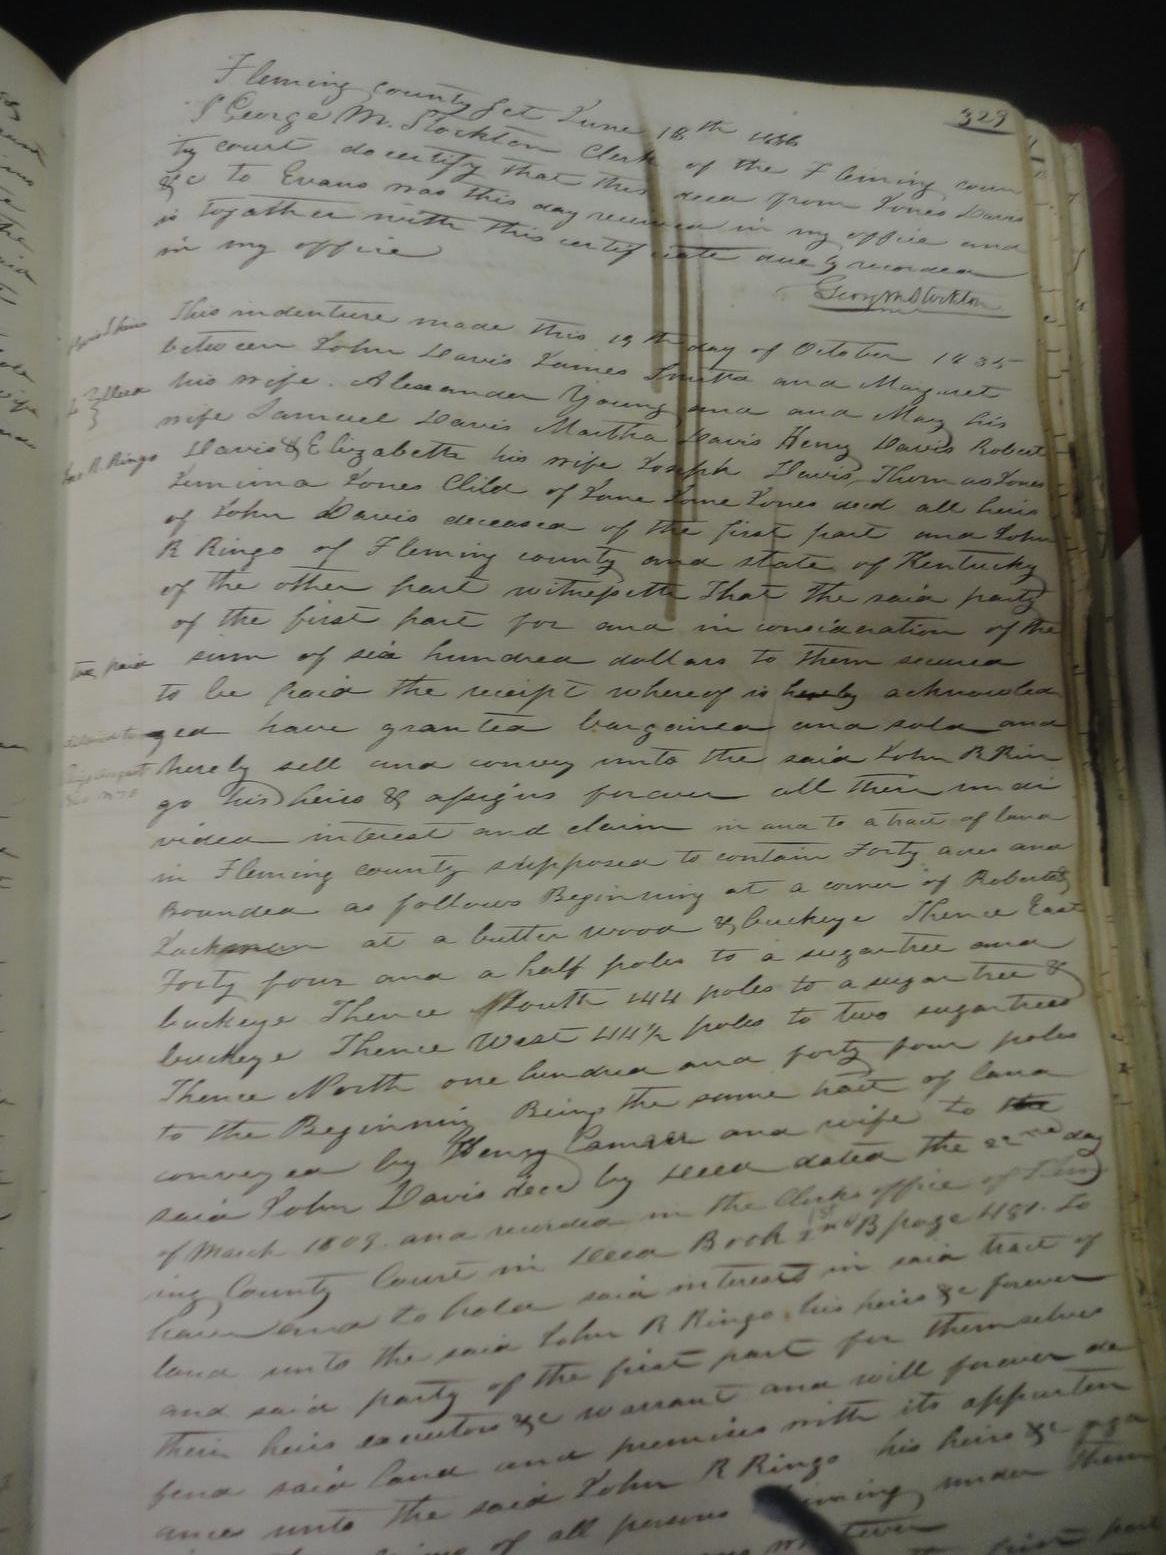 329
Fleming county Sct June 18th 1836
I George M. Stockton Clerk of the Fleming coun
ty court do certify that this deed from Jones Davis
&c to Evans was this day received in my office and
is together with this certificate duly recorded
in my office
George M Stockton
This indenture made this 19th day of October 1835
between John Davis James Smith and Margaret
his wife. Alexander Young and and Mary his
wife Samuel Davis Martha Davis Henry Davis Robert
Davis & Elizabeth his wife Joseph Davis, Thomas Jones
Jemima Jones Child of Jane Jones decd all heirs
of John Davis deceased of the first part and John
R Ringo of Fleming county and state of Kentucky
of the other part witnesseth That the said party
of the first part for and in consideration of the
sum of six hundred dollars to them secured
to be paid the receipt whereof is hereby acknowled
ged have granted bargained and sold and
hereby sell and convey unto the said John R Rin
go his heirs & assigns forever all their undi
vided interest and claim in and to a tract of land
in Fleming county supposed to contain Forty acres and
Bounded as follows Beginning at a corner of Robert
at a butter wood & buckeye Thence East
Forty four and a half poles to a sugartree and
buckeye Thence South 144 poles to a sugar tree &
buckeye Thence West 44½ poles to two sugartrees
Thence North one hundred and forty four poles
to the Beginning Being the same tract of land
conveyed by Henry and wife to the
said John Davis decd by deed dated the 22nd day
of March 1809. and recorded in the Clerks office of Flem
ing County Court in deed Book B page 481. To
have and to hold said interest in said tract of
land unto the said John R Ringo his heirs &c forever
and said party of the first part for themselves
their heirs executors &c warrant and will forever de
fend said land and premises with its appurten
ances unto the said John R Ringo his heirs &c aga
of all persons claiming under them
whatever
first part
Davis Heirs
To } Deed
Jno R. Ringo
tax paid